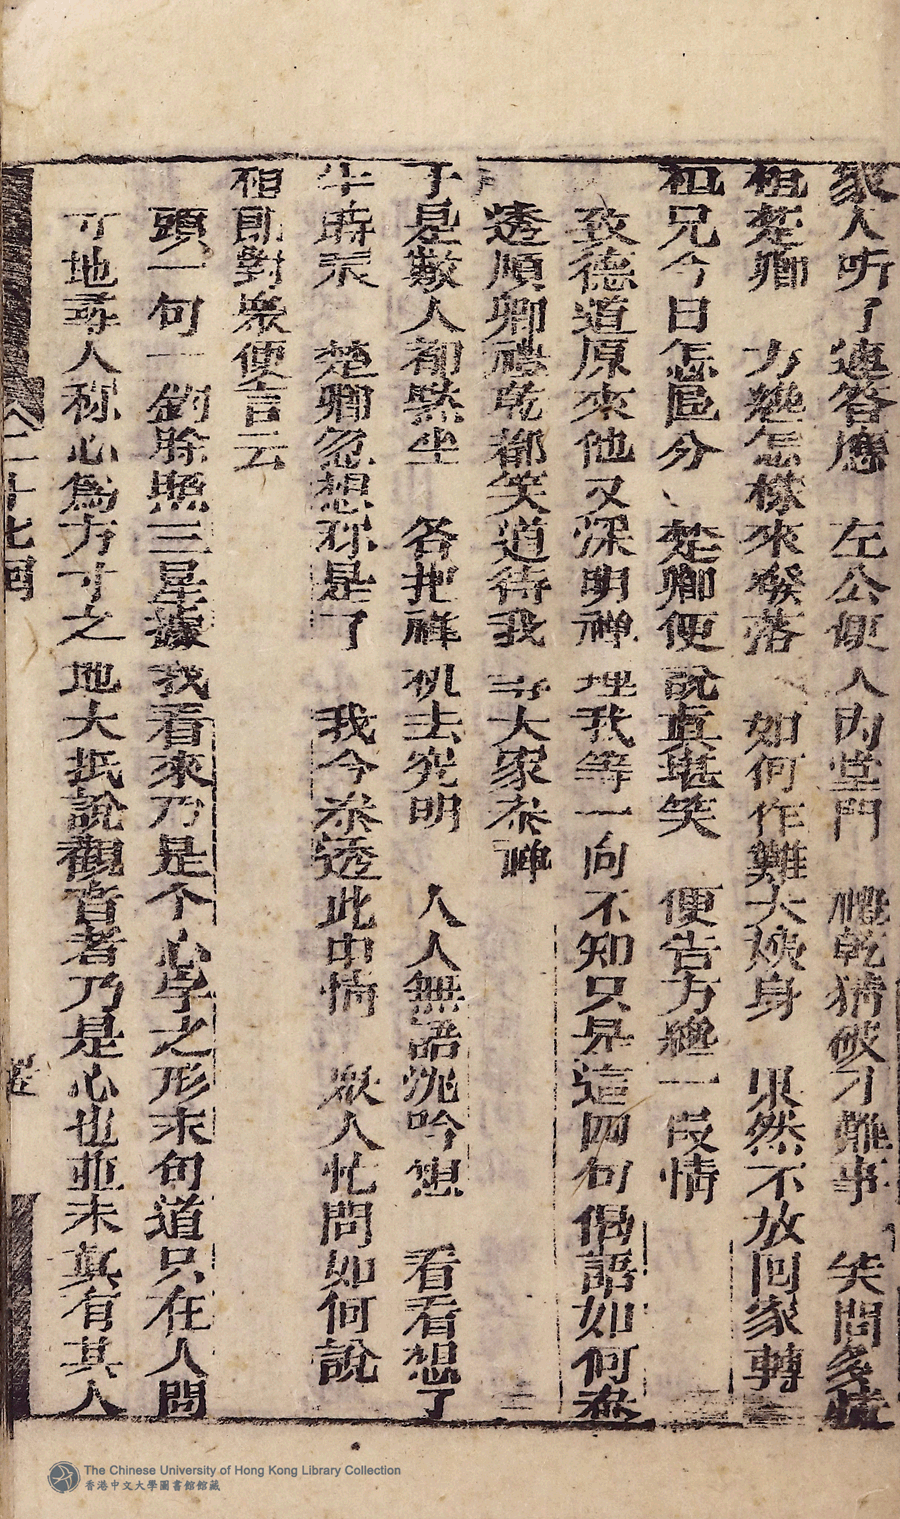 家人听了連答應　左公便入內堂門　禮乾猜破才難事　笑問多
祖楚卿　方纔怎樣來發落　如何作難大姨身　果然不放回家轉
祖兄今日怎區分　楚卿便說真堪笑　便告方纔一段情
致德道原來他又深明禪理我等一向不知只是這四句偈語如何參
透順卿禮乾都笑道待我等大家參禪
于是數人都黙坐　各把禪机去究明　人人無語沈吟想　看看想了
半時辰　楚卿忽想称是了　我今參透此中情　衆人忙問如何說
祖即對衆便言云
頭一句一鈎除照三星據我看來乃是个心字之形末句道只在人間
寸地尋人称心為方寸之地大抵說觀音者乃是心也並未真有其人
二十七回
The Chinese University of Hong Kong Library Collection
香港中文大學圖書館館藏